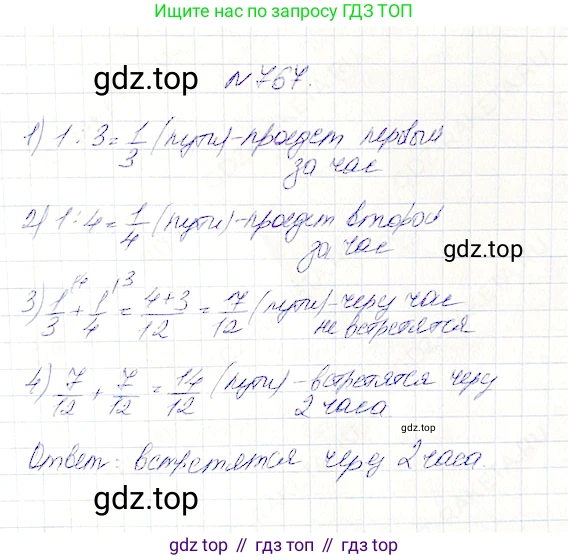 Ищите нас по запросу ГДЗ ТОП
gdz.top
N 767.
1) 1 : 3 = 1/3 (пути) - проедет первый
за час
2) 1 : 4 = 1/4 (пути) - проедет второй
за час
gdz.top
3) 1/3 + 1/4 = 4+3/12 = 7/12 (пути) - через час
не встретятся
4) 7/12 + 7/12 = 14/12 (пути) - встретятся через
2 часа
gdz.top
Ответ: встретятся через 2 часа.
gdz.top
gdz.top // гдз топ // gdz.top // гдз топ